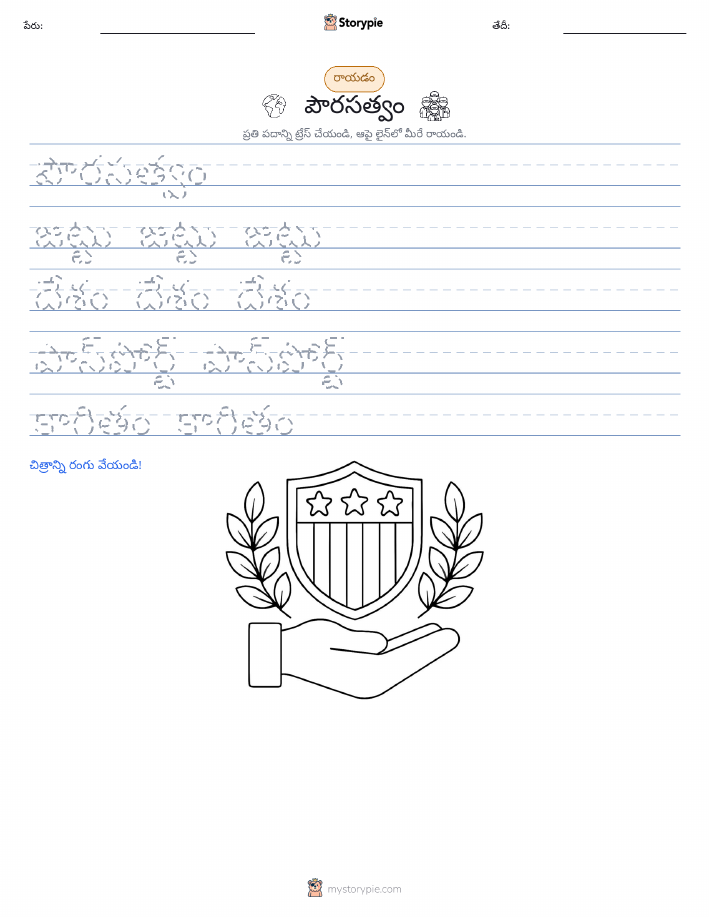 పేరు:
Storypie
తేదీ:
రాయడం
పౌరసత్వం
ప్రతి పదాన్ని ట్రేస్ చేయండి, ఆపై లైన్‌లో మీరే రాయండి.
పౌరసత్వం
జట్టు జట్టు జట్టు
దేశం దేశం దేశం
పాస్‌పోర్ట్ పాస్‌పోర్ట్
కాగితం కాగితం
చిత్రాన్ని రంగు వేయండి!
mystorypie.com